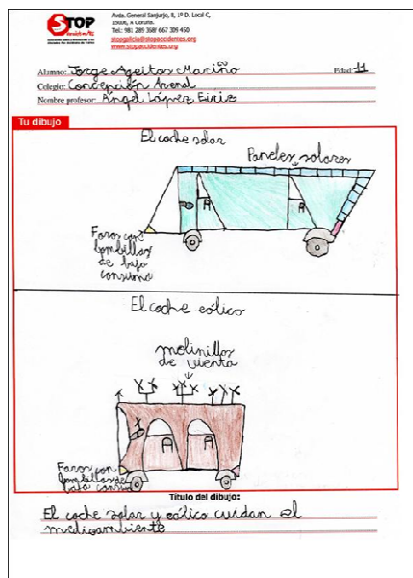 STOP
Avda. General Sanjurjo, 8, 1º D. Local C,
15006, A Coruña.
Tel.: 981 289 358/ 667 309 450
stopgalicia@stopaccidentes.org
www.stopaccidentes.org
Alumno: Jorge Ageitos Mariño Edad 11
Colegio: Concepción Arenal
Nombre profesor: Ángel López Eiriz
Tu dibujo
El coche solar
Paneles solares
Faros con
bombillas
de bajo
consumo
El coche eólico
molinillos
de viento
Faros con
bombillas de
bajo consumo
Título del dibujo:
El coche solar y eólico cuidan el
medioambiente